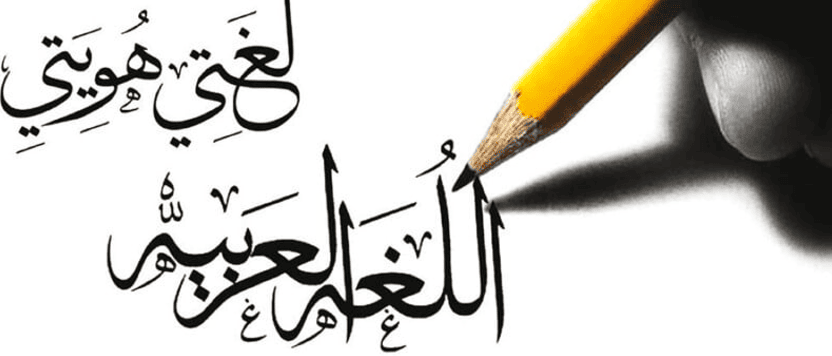 لغَتِي هُوِيَتِي
اللُغَه العَرَبيه